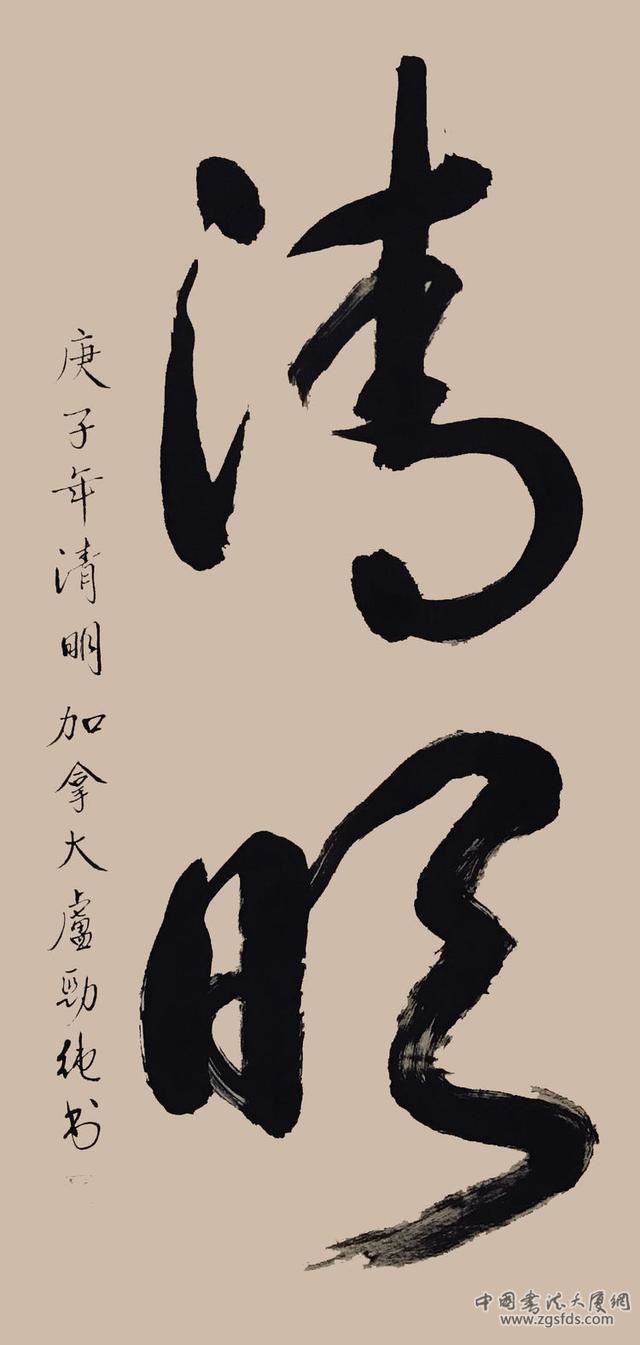 清明
庚子年清明加拿大盧勁純书
中国書法大厦網
www.zgsfds.com